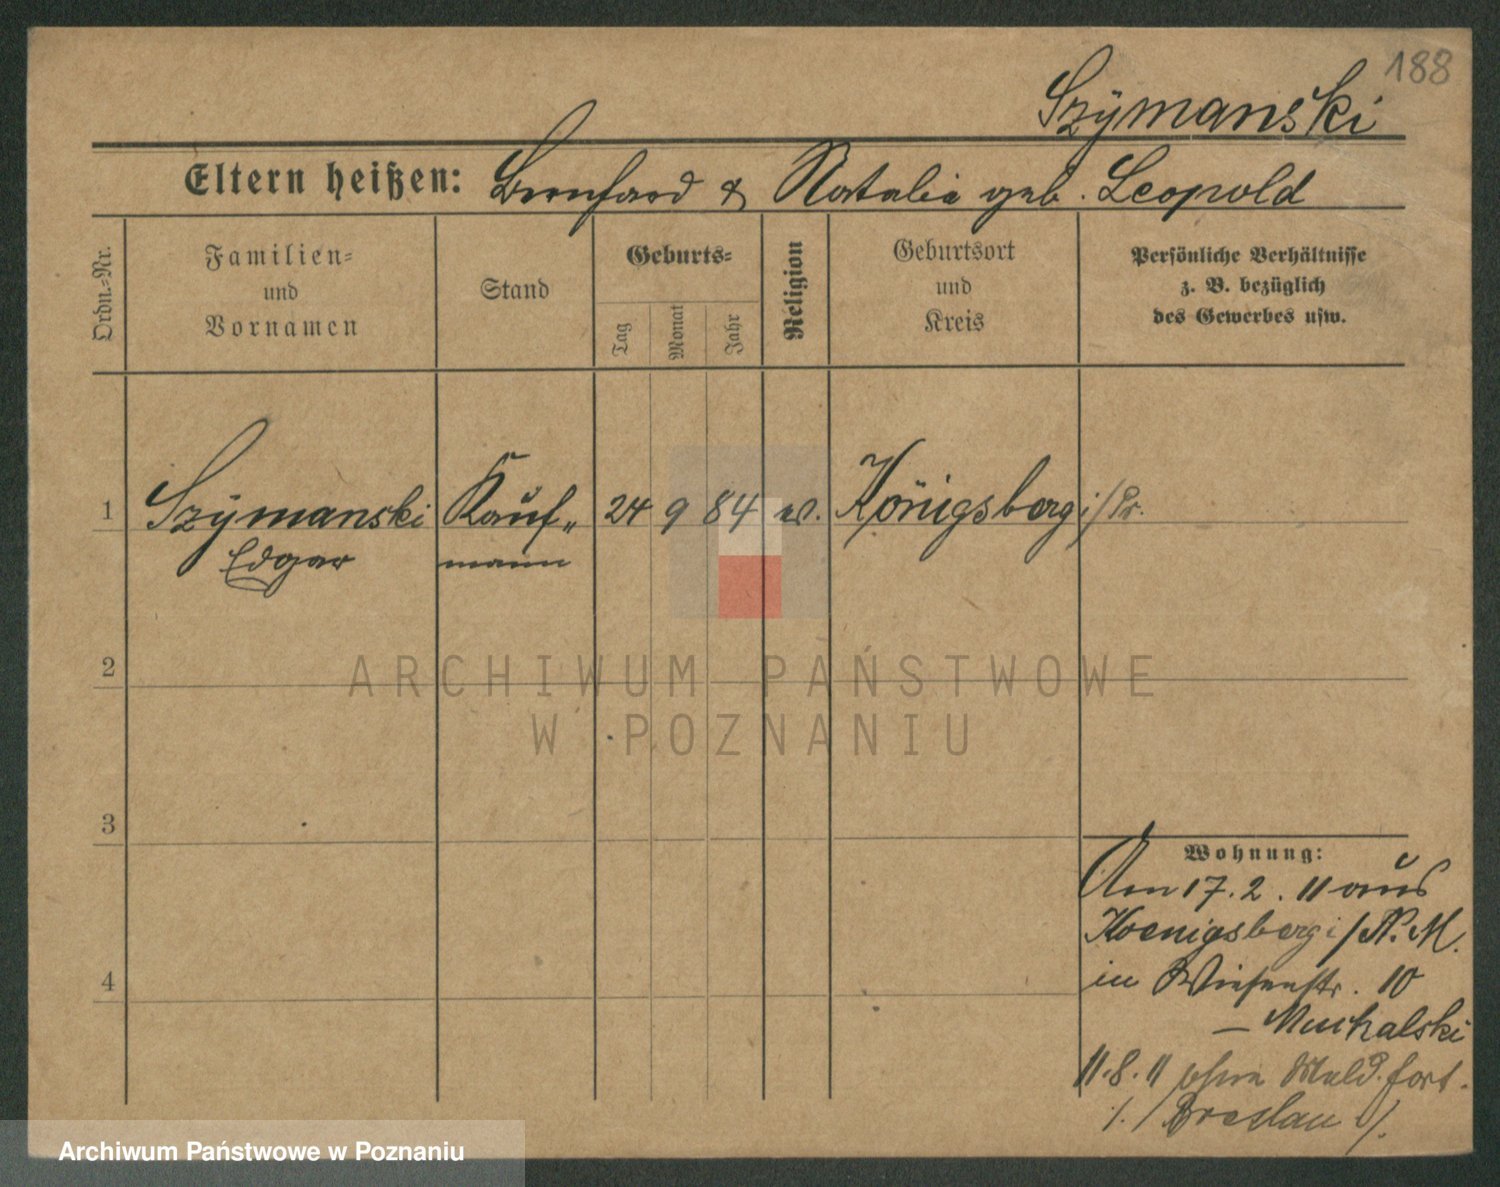 188
Szÿmanski
Eltern heißen: Bernhard & Natalie geb. Leopold
Ordn.=Nr.
Familien=
und
Vornamen
Stand
Geburts=
Tag
Monat
Jahr
Religion
Geburtsort
und
Kreis
Persönliche Verhältnisse
z. B. bezüglich
des Gewerbes usw.
1 Szÿmanski Kauf„ 24 9 84 Königsberg i/Pr.
Edgar mann
2
3
4
Wohnung:
Am 17.2.11 aus
Koenigsberg i/N.M.
in Wiesenstr. 10
– Muchalski
11.8.11 ohne Meld. fort.
/ Breslau /.
ARCHIWUM PAŃSTWOWE
W POZNANIU
Archiwum Państwowe w Poznaniu